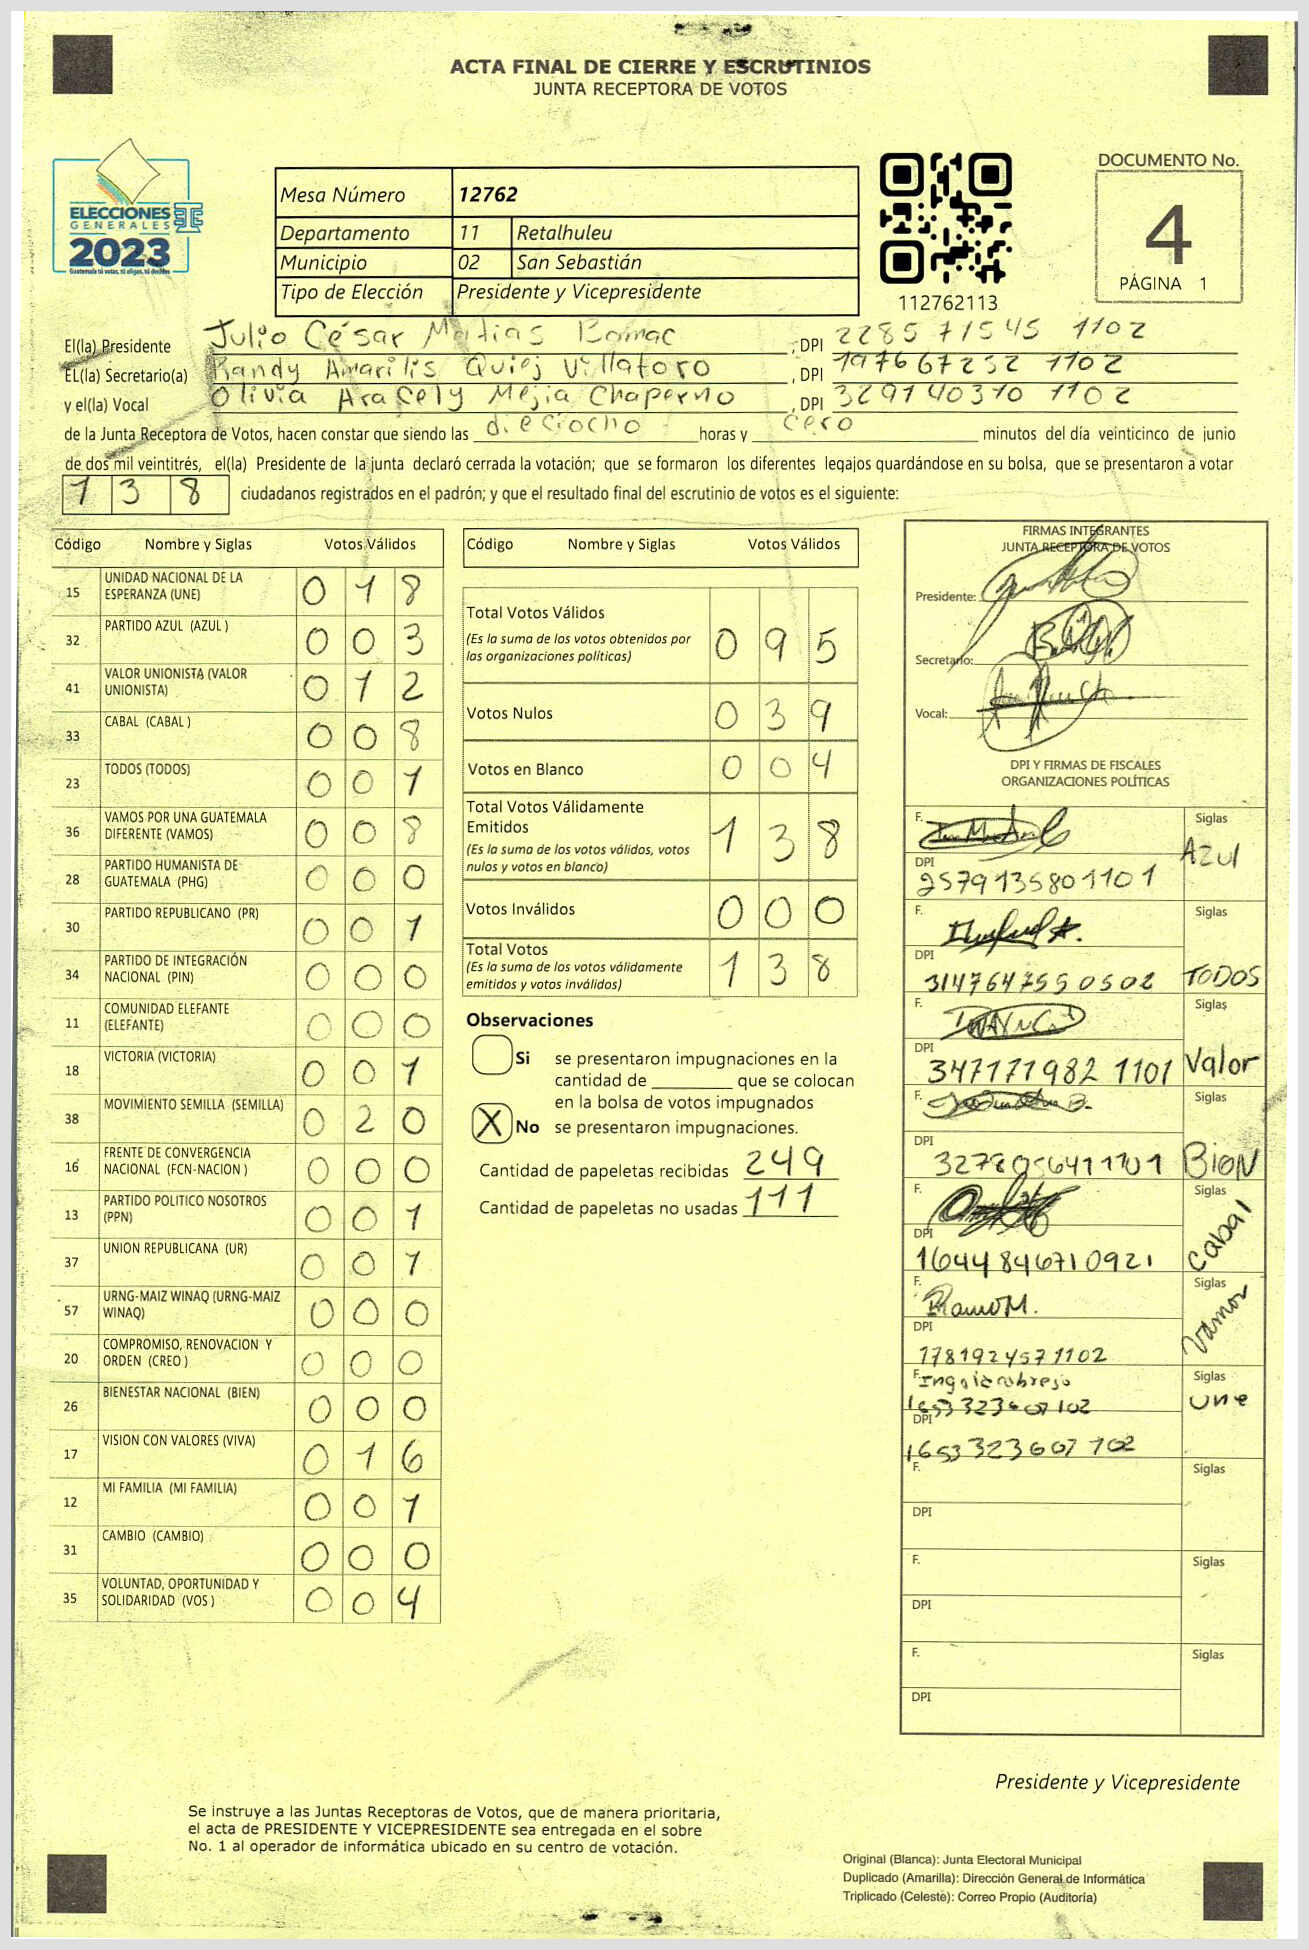 ACTA FINAL DE CIERRE Y ESCRUTINIOS
JUNTA RECEPTORA DE VOTOS
ELECCIONES
GENERALES
2023
Guatemala tú votas, tú eliges, tú decides
Mesa Número 12762
Departamento 11 Retalhuleu
Municipio 02 San Sebastián
Tipo de Elección Presidente y Vicepresidente
112762113
DOCUMENTO No.
4
PÁGINA 1
El(la) Presidente Julio César Matias Bomac, DPI 2285 71545 1102
EL(la) Secretario(a) Randy Amarilis Quiej Villatoro, DPI 197667252 1102
y el(la) Vocal Olivia Aracely Mejia Chaperno, DPI 329140310 1102
de la Junta Receptora de Votos, hacen constar que siendo las dieciocho horas y cero minutos del día veinticinco de junio
de dos mil veintitrés, el(la) Presidente de la junta declaró cerrada la votación; que se formaron los diferentes legajos guardándose en su bolsa, que se presentaron a votar
138 ciudadanos registrados en el padrón; y que el resultado final del escrutinio de votos es el siguiente:
Código Nombre y Siglas Votos Válidos
15 UNIDAD NACIONAL DE LA ESPERANZA (UNE) 0 1 8
32 PARTIDO AZUL (AZUL ) 0 0 3
41 VALOR UNIONISTA (VALOR UNIONISTA) 0 1 2
33 CABAL (CABAL ) 0 0 8
23 TODOS (TODOS) 0 0 1
36 VAMOS POR UNA GUATEMALA DIFERENTE (VAMOS) 0 0 8
28 PARTIDO HUMANISTA DE GUATEMALA (PHG) 0 0 0
30 PARTIDO REPUBLICANO (PR) 0 0 1
34 PARTIDO DE INTEGRACIÓN NACIONAL (PIN) 0 0 0
11 COMUNIDAD ELEFANTE (ELEFANTE) 0 0 0
18 VICTORIA (VICTORIA) 0 0 1
38 MOVIMIENTO SEMILLA (SEMILLA) 0 2 0
16 FRENTE DE CONVERGENCIA NACIONAL (FCN-NACION ) 0 0 0
13 PARTIDO POLITICO NOSOTROS (PPN) 0 0 1
37 UNION REPUBLICANA (UR) 0 0 1
57 URNG-MAIZ WINAQ (URNG-MAIZ WINAQ) 0 0 0
20 COMPROMISO, RENOVACION Y ORDEN (CREO ) 0 0 0
26 BIENESTAR NACIONAL (BIEN) 0 0 0
17 VISION CON VALORES (VIVA) 0 1 6
12 MI FAMILIA (MI FAMILIA) 0 0 1
31 CAMBIO (CAMBIO) 0 0 0
35 VOLUNTAD, OPORTUNIDAD Y SOLIDARIDAD (VOS ) 0 0 4
Código Nombre y Siglas Votos Válidos
Total Votos Válidos 0 9 5
(Es la suma de los votos obtenidos por
las organizaciones políticas)
Votos Nulos 0 3 9
Votos en Blanco 0 0 4
Total Votos Válidamente
Emitidos 1 3 8
(Es la suma de los votos válidos, votos
nulos y votos en blanco)
Votos Inválidos 0 0 0
Total Votos 1 3 8
(Es la suma de los votos válidamente
emitidos y votos inválidos)
Observaciones
Si se presentaron impugnaciones en la
cantidad de ________ que se colocan
en la bolsa de votos impugnados
X No se presentaron impugnaciones.
Cantidad de papeletas recibidas 249
Cantidad de papeletas no usadas 111
FIRMAS INTEGRANTES
JUNTA RECEPTORA DE VOTOS
Presidente:
Secretario:
Vocal:
DPI Y FIRMAS DE FISCALES
ORGANIZACIONES POLÍTICAS
F. Siglas Azul
DPI 2579135801101
F. Siglas TODOS
DPI 3147647550502
F. Siglas Valor
DPI 347171982 1101
F. Siglas BIEN
DPI 3278056411101
F. Siglas Cabal
DPI 1644846710921
F. Siglas Vamos
DPI 1781924571102
F. Siglas une
1653323607102
DPI 1653323607 102
F. Siglas
DPI
F. Siglas
DPI
F. Siglas
DPI
Presidente y Vicepresidente
Se instruye a las Juntas Receptoras de Votos, que de manera prioritaria,
el acta de PRESIDENTE Y VICEPRESIDENTE sea entregada en el sobre
No. 1 al operador de informática ubicado en su centro de votación.
Original (Blanca): Junta Electoral Municipal
Duplicado (Amarilla): Dirección General de Informática
Triplicado (Celeste): Correo Propio (Auditoría)